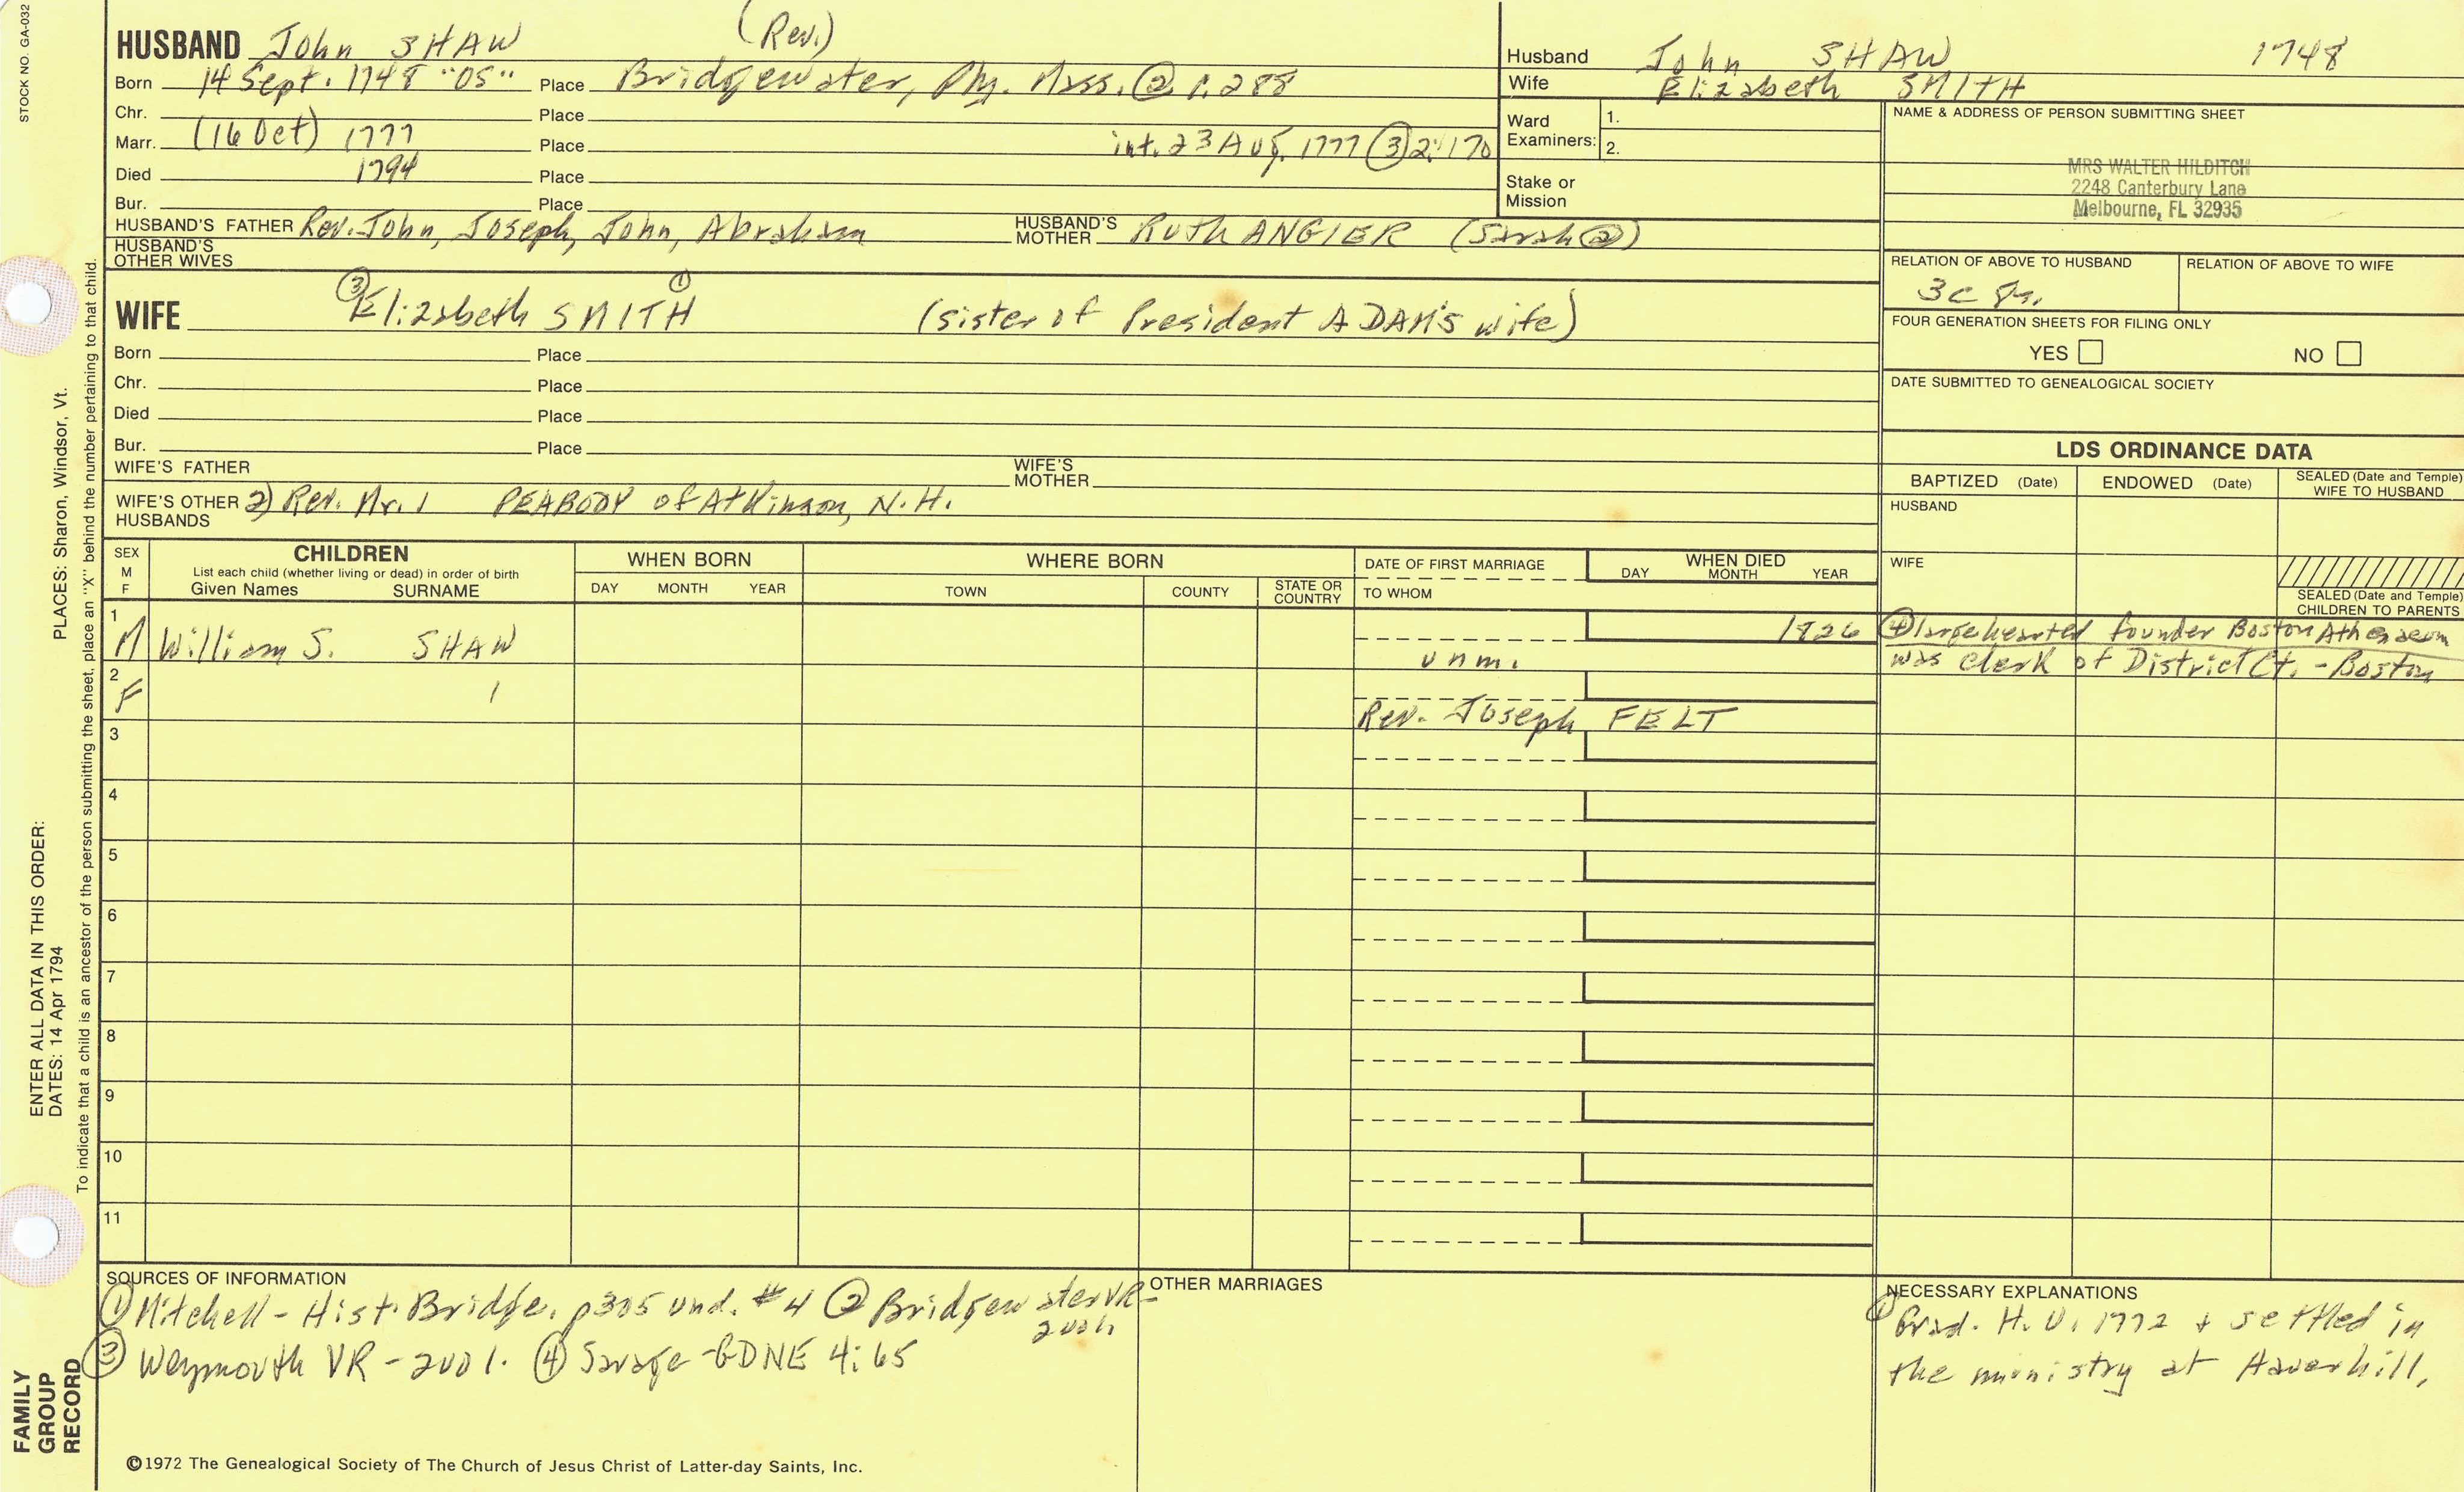 STOCK NO. GA-032
HUSBAND John SHAW (Rev.)
Born 14 Sept. 1748 "OS" Place Bridgewater, Ply. Mass. ② p. 288
Chr. Place
Marr. (16 Oct) 1777 Place int. 23 Aug. 1777 ③ 2:170
Died 1794 Place
Bur. Place
HUSBAND'S FATHER Rev. John, Joseph, John, Abraham HUSBAND'S MOTHER RUTH ANGIER (Sarah @)
HUSBAND'S OTHER WIVES
WIFE ③ Elizabeth SMITH ① (sister of President ADAM'S wife)
Born Place
Chr. Place
Died Place
Bur. Place
WIFE'S FATHER WIFE'S MOTHER
WIFE'S OTHER HUSBANDS 2) Rev. Mr. 1 PEABODY of Atkinson, N.H.
Husband John SHAW 1748
Wife Elizabeth SMITH
Ward Examiners: 1.
2.
Stake or Mission
NAME & ADDRESS OF PERSON SUBMITTING SHEET
MRS WALTER HILDITCH
2248 Canterbury Lane
Melbourne, FL 32935
RELATION OF ABOVE TO HUSBAND RELATION OF ABOVE TO WIFE
3c
FOUR GENERATION SHEETS FOR FILING ONLY
YES NO
DATE SUBMITTED TO GENEALOGICAL SOCIETY
LDS ORDINANCE DATA
BAPTIZED (Date) ENDOWED (Date) SEALED (Date and Temple) WIFE TO HUSBAND
HUSBAND
WIFE
SEALED (Date and Temple) CHILDREN TO PARENTS
SEX M F
CHILDREN
List each child (whether living or dead) in order of birth
Given Names SURNAME
WHEN BORN
DAY MONTH YEAR
WHERE BORN
TOWN COUNTY STATE OR COUNTRY
DATE OF FIRST MARRIAGE
TO WHOM
WHEN DIED
DAY MONTH YEAR
1 M William S. SHAW unm. 1826 ④ largehearted founder Boston Athenaeum
was clerk of District Ct. - Boston
2 F 1 Rev. Joseph FELT
3
4
5
6
7
8
9
10
11
SOURCES OF INFORMATION
① Mitchell - Hist. Bridge. p305 und. #4 ② Bridgewater VR-
2vol.
③ Weymouth VR - 2vol. ④ Savage - GDNE 4:65
OTHER MARRIAGES
NECESSARY EXPLANATIONS
① Grad. H. U. 1772 + settled in
the ministry at Haverhill,
©1972 The Genealogical Society of The Church of Jesus Christ of Latter-day Saints, Inc.
ENTER ALL DATA IN THIS ORDER:
PLACES: Sharon, Windsor, Vt.
DATES: 14 Apr 1794
To indicate that a child is an ancestor of the person submitting the sheet, place an "X" behind the number pertaining to that child.
FAMILY
GROUP
RECORD